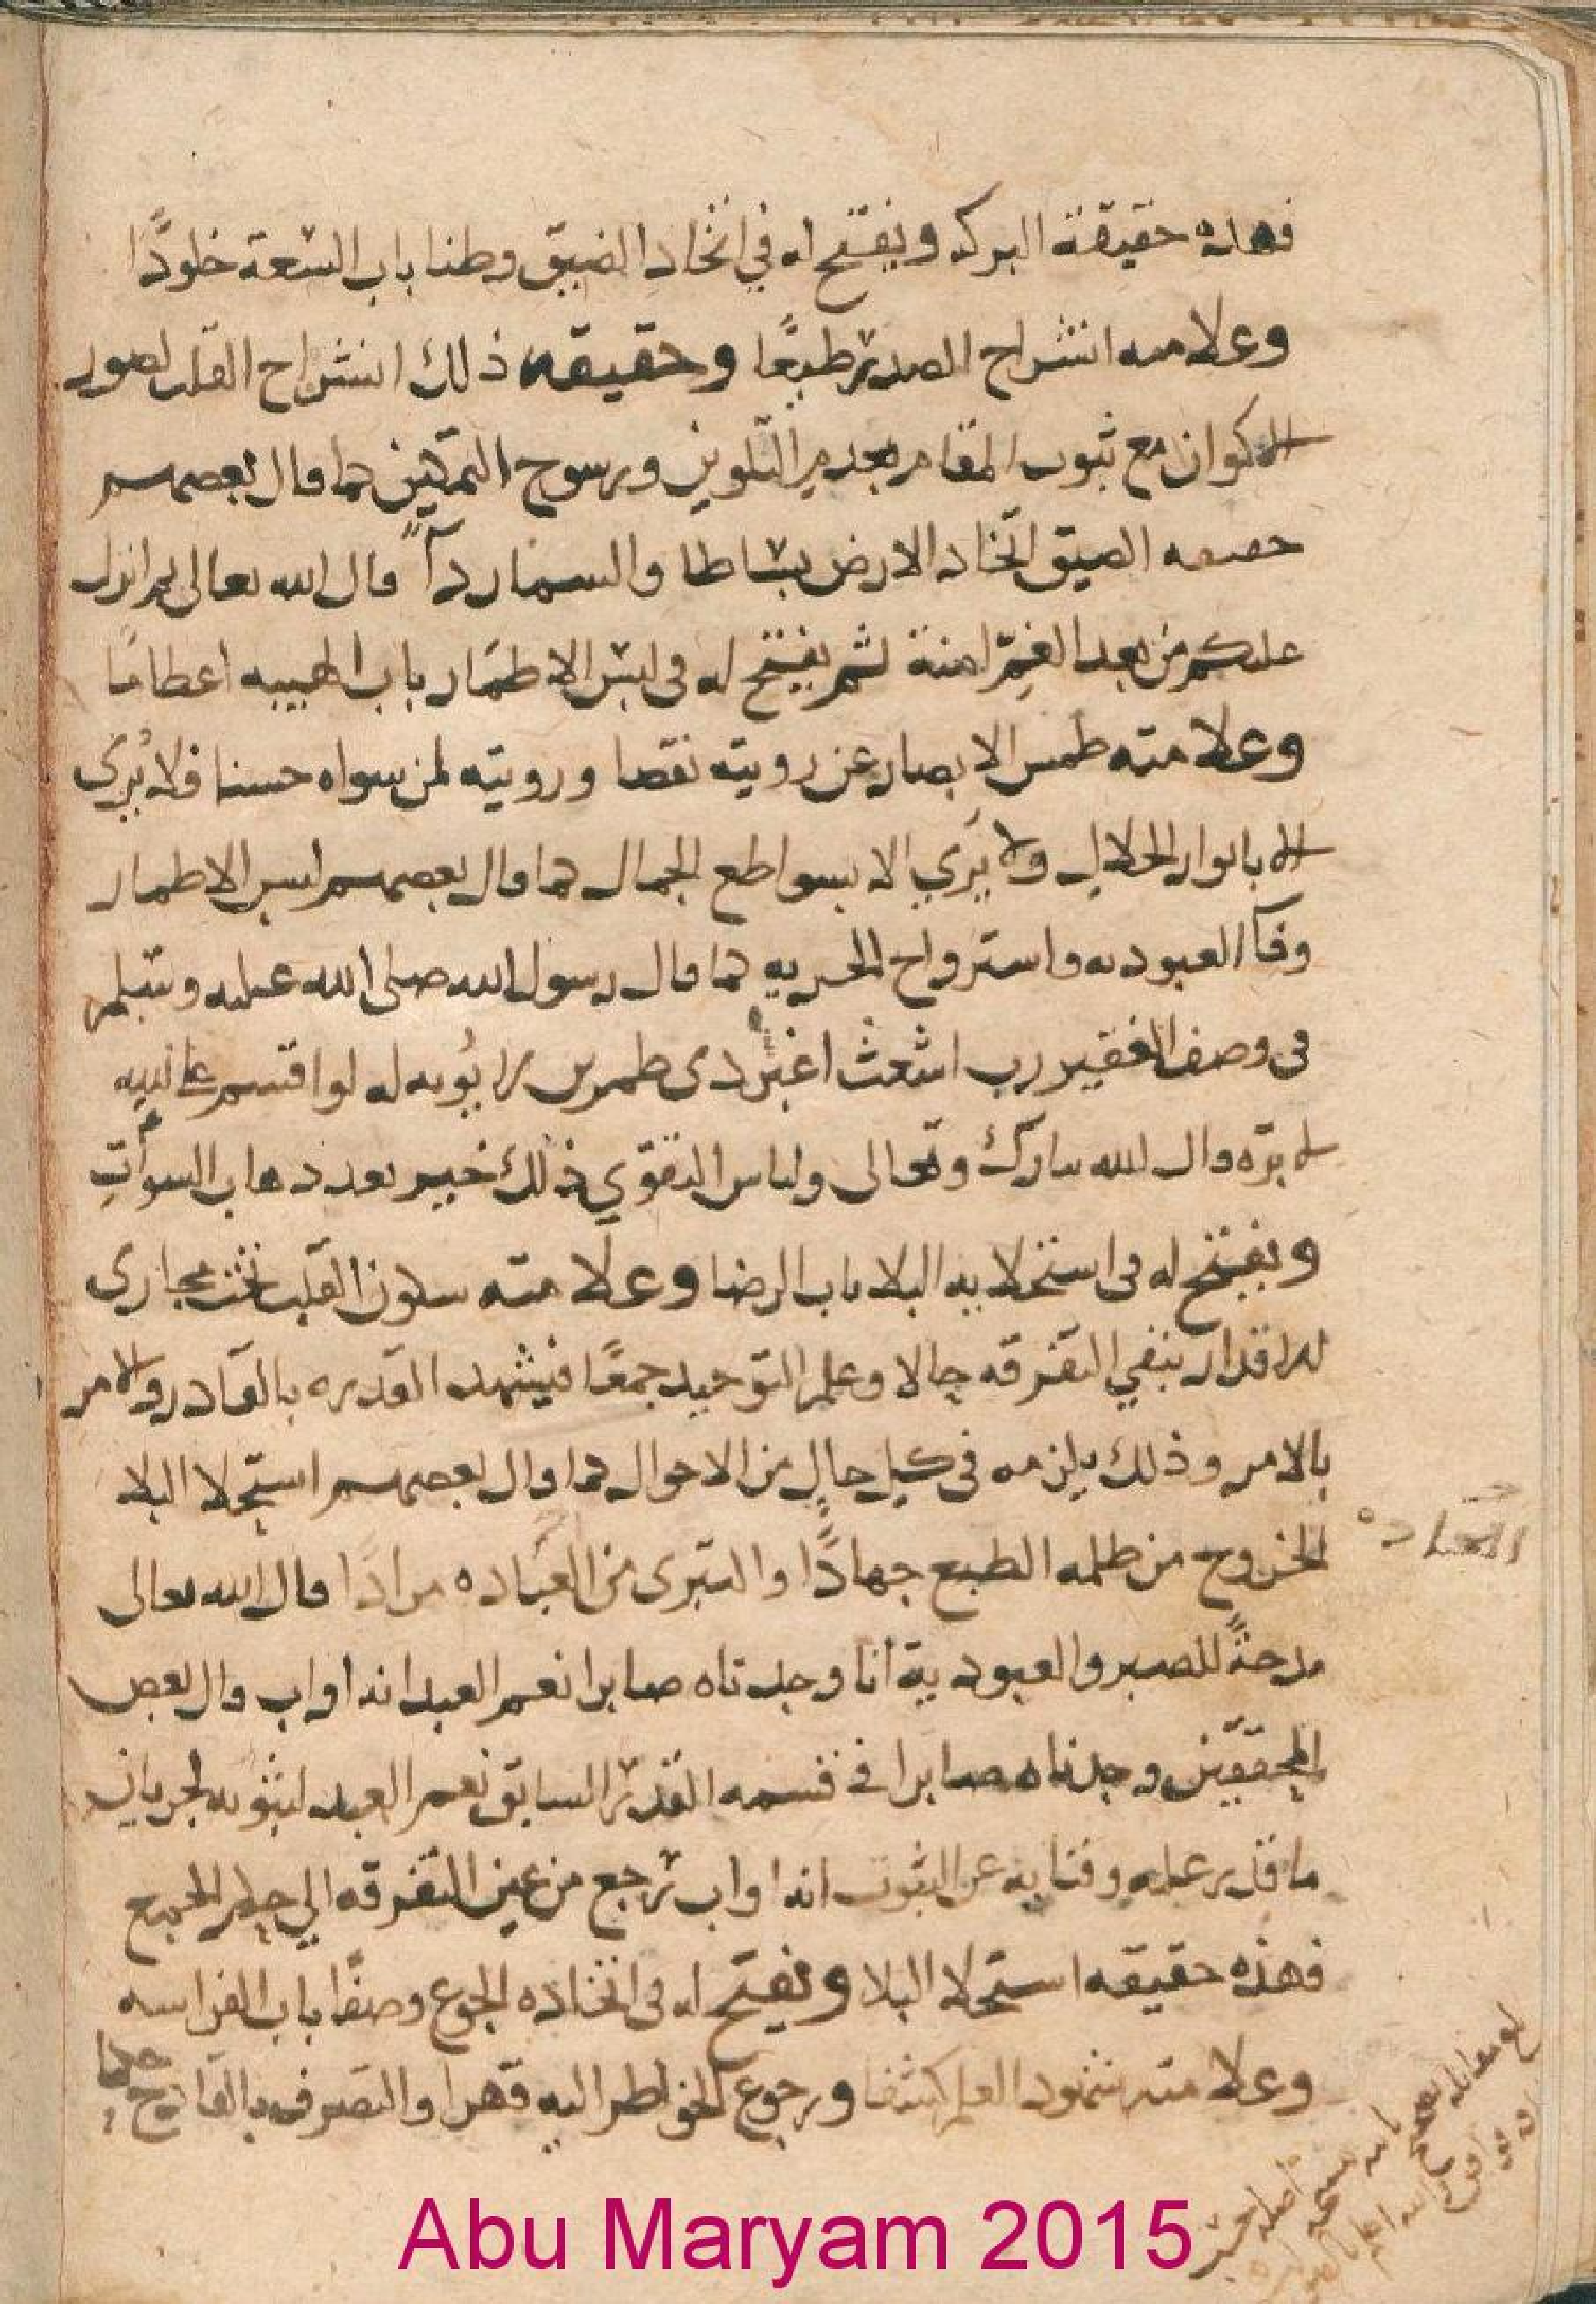 فهذه حقيقة البركه ويفتح له في اتخاذ الضيق وطنا باب السعة خلودًا
وعلامته انشراح الصدر طبعًا وحقيقه ذلك انشراح القلب لصور
الاكوان مع ثبوت المقام بعد من التلوين ورسوخ التمكين كما قال بعضهم
حقيقه الضيق اتخاذ الارض بساطا والسما ردآً قال الله تعالى ثم انزل
عليكم من بعد الغم امنة ثم يفتح له في لبس الاطمار باب الهيبه اعظامًا
وعلامته طمس الابصار عن رويته نقصا ورويته لمن سواه حسنا فلا يُرى
الا بانوار الجلال ولا يَري الا بسواطع الجمال كما قال بعضهم لبس الاطمار
وفآ العبوديه واسترواح الحريه كما قال رسول الله صلى الله عليه وسلم
في وصف الفقير رب اشعث اغبر ذى طمرين لا يُوبه له لو اقسم على الله
لابرّه وقال الله تبارك وتعالى ولباس التقوي ذلك خير بعد ذهاب السوآت
ويفتح له في استحلايه البلا باب الرضا وعلامته سكون القلب تحت مجاري
الاقدار بنفي التفرقه حالا وعلم التوحيد جمعًا فيشهد القدره بالقادر والامر
بالامر وذلك يلزمه في كل حالٍ من الاحوال كما قال بعضهم استحلا البلا
الخروج من ظلمه الطبع جهادًا والتبرى من العباده مرادًا قال الله تعالى
العباده
مدحةً للصبر والعبودية انا وجدناه صابرا نعم العبد انه اواب قال بعض
المحققين وجدناه صابرا في قسمه القدر السابق نعم العبد لثبوته لجريان
ما قدر عليه وفنايه عن الثبوت انه اواب رجع من عين التفرقه الي الجمع
فهذه حقيقه استحلا البلا ويفتح له في اتخاذه الجوع وصفًا باب الفراسه
وعلامته شهود العلم كشفا ورجوع الخواطر اليه قهرا والتصرف
Abu Maryam 2015